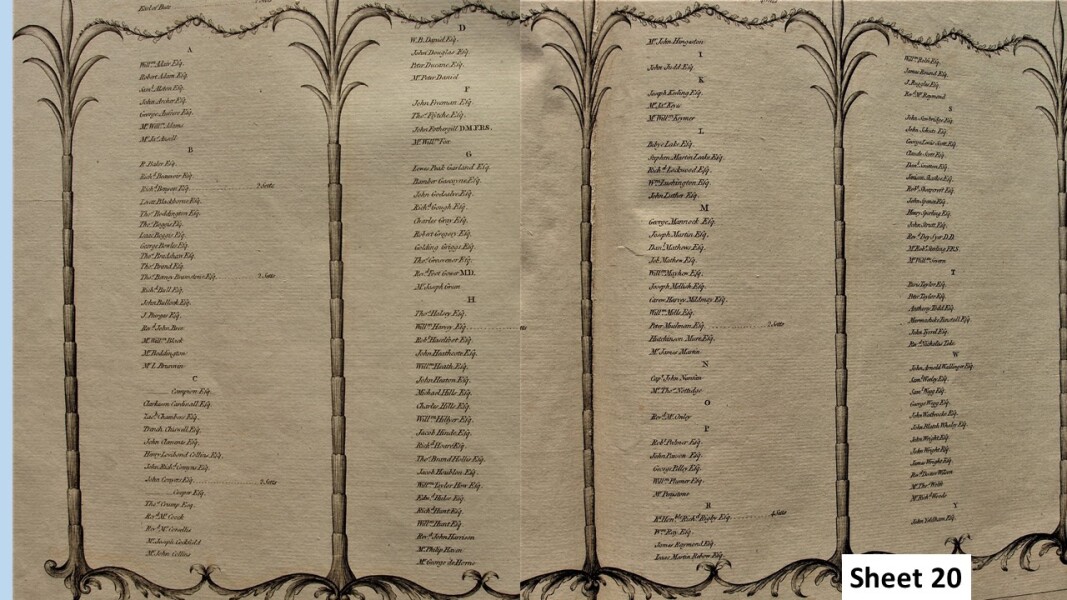 Earl of Bute
A
Will.m Adair Esq.
Robert Adam Esq.
Sam.l Alston Esq.
John Archer Esq.
George Esq.
M.r Will.m Adams
M.r Ja.s Ansell
B
P. Bales Esq.
Rich.d Esq.
Rich.d Benyon Esq. 2 Setts
Levit Blackborne Esq.
Tho.s Boddington Esq.
Tho.s Boggis Esq.
Isaac Boggis Esq.
George Bowles Esq.
Tho.s Bradshaw Esq.
Tho.s Brand Esq.
Tho.s Berney Bramston Esq. 2 Setts
Rich.d Bull Esq.
John Bullock Esq.
J. Burges Esq.
Rev.d John
M.r Will.m Black
M.r Boddington
M.r I.
C
Campion Esq.
Clarkson Cardinall Esq.
Zac.h Chambers Esq.
Trench Chiswell Esq.
John Clements Esq.
Henry Lovibond Collins Esq.
John Rich.d Comyns Esq.
John Conyers Esq. 2 Setts
Cooper Esq.
Tho.s Crump Esq.
Rev.d M.r Cook
Rev.d M.r
M.r Joseph
M.r John Collins
D
W. B. Daniel Esq.
John Douglas Esq.
Peter Du Cane Esq.
M.r Peter Daniel
F
John Freeman Esq.
Tho.s Fytche Esq.
John Fothergill D.M. F.R.S.
M.r Will.m Fox
G
Lewis Peak Garland Esq.
Bamber Gascoyne Esq.
John Godsalve Esq.
Rich.d Gough Esq.
Charles Gray Esq.
Robert Gregory Esq.
Golding Griggs Esq.
Tho.s Grosvenor Esq.
Rev.d Foot Gower M.D.
M.r Joseph Green
H
Tho.s Halsey Esq.
Will.m Harvey Esq.
Rob.t Haselfoot Esq.
John Heathcote Esq.
Will.m Heath Esq.
John Heaton Esq.
Michael Hills Esq.
Charles Hills Esq.
Will.m Hillyer Esq.
Jacob Hinde Esq.
Rich.d Hoare Esq.
Tho.s Brand Hollis Esq.
Jacob Houblon Esq.
Will.m Taylor How Esq.
Edw.d Hulse Esq.
Rich.d Hunt Esq.
Will.m Hunt Esq.
Rev.d John Harrison
M.r Philip Haven
M.r George de Horne
M.r John Hingeston
I
John Judd Esq.
K
Joseph Keeling Esq.
M.r Ja.s Keys
M.r Will.m Keymer
L
Bibye Lake Esq.
Stephen Martin Leake Esq.
Rich.d Lockwood Esq.
W.m Lushington Esq.
John Luther Esq.
M
George Mannock Esq.
Joseph Martin Esq.
Dan.l Mathews Esq.
Job Mathew Esq.
Will.m Mayhew Esq.
Joseph Mellish Esq.
Carew Harvey Mildmay Esq.
Will.m Mills Esq.
Peter Muilman Esq. 2 Setts
Hutchinson Mure Esq.
M.r James Martin
N
Cap.t John Nunn
M.r Tho.s Nottidge
O
Rev.d M.r Onley
P
Rob.t Palmer Esq.
John Pawson Esq.
George Pilley Esq.
Will.m Plumer Esq.
M.r
R
R.t Hon.ble Rich.d Rigby Esq. 4 Setts
W.m Ray Esq.
James Raymond Esq.
Isaac Martin Rebow Esq.
Will.m Esq.
James Round Esq.
J. Ruggles Esq.
Rev.d M.r Raymond
S
John Sawbridge Esq.
John Esq.
George Lewis Scott Esq.
Claude Scott Esq.
Dan.l Esq.
Esq.
Rev.d Esq.
John Spencer Esq.
Henry Sperling Esq.
John Strutt Esq.
Rev.d Dey Syer D.D.
M.r Rob.t Starling F.R.S.
M.r Will.m
T
Taylor Esq.
Peter Taylor Esq.
Anthony Todd Esq.
Marmaduke Tunstall Esq.
John Tyrell Esq.
Rev.d Nicholas
W
John Arnold Wallinger Esq.
Sam.l Esq.
Sam.l Wegg Esq.
George Wegg Esq.
John Esq.
John Heath Esq.
John Wright Esq.
John Wright Esq.
James Wright Esq.
Rev.d Doctor Wilson
M.r Tho.s Webb
M.r Rich.d Woods
Y
John Yeldham Esq.
Sheet 20